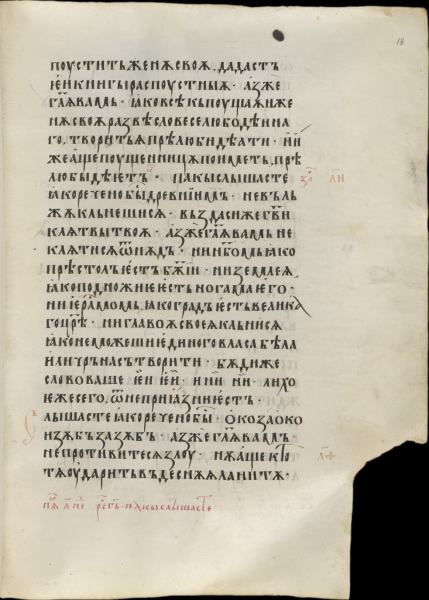 18
поуститъ женѫ своѫ, да дастъ
ѥи книгы распоустныѧ · азъ же
гл҃ѭ вамъ · ꙗко всѣкъ поущаѧи же
нѫ своѫ развѣ словесе любодѣина
го, творитъ ѭ прѣлюбꙑ дѣати · и и
же аще поущеницѫ поиметъ, прѣ
любꙑ дѣетъ · пакы слышасте
ꙗко речено бы древнимъ · не въ лъ
жѫ кльнеши сѧ · въздаси же г҃ви
клѧтвы твоѧ · азъ же гл҃ѭ вамъ не
клѧти сѧ ѿнѫдъ · ни нб҃омь ꙗко
прѣстолъ ѥстъ б҃жіи · ни землеѧ
ꙗко подножиѥ ѥстъ ногама ѥго ·
ни іер҃лмомь, ꙗко градъ ѥстъ велика
го цр҃ѣ · ни главоѫ своеѧ кльни сѧ
ꙗко неможеши единого власа бѣла
или чръна сътворити · бѫди же
слово ваше ѥи ѥи · и ни ни · лихо
еже сего, ѿ неприꙗзни ѥстъ ·
лышасте ꙗко речено бы · око за око
и зѫбъ за зѫбъ · азъ же гл҃ѭ вамъ
не противите сѧ злоу · нѫ аще кто
тѧ оударитъ въ деснѫѧ ланитѫ ·
пакы слышасте